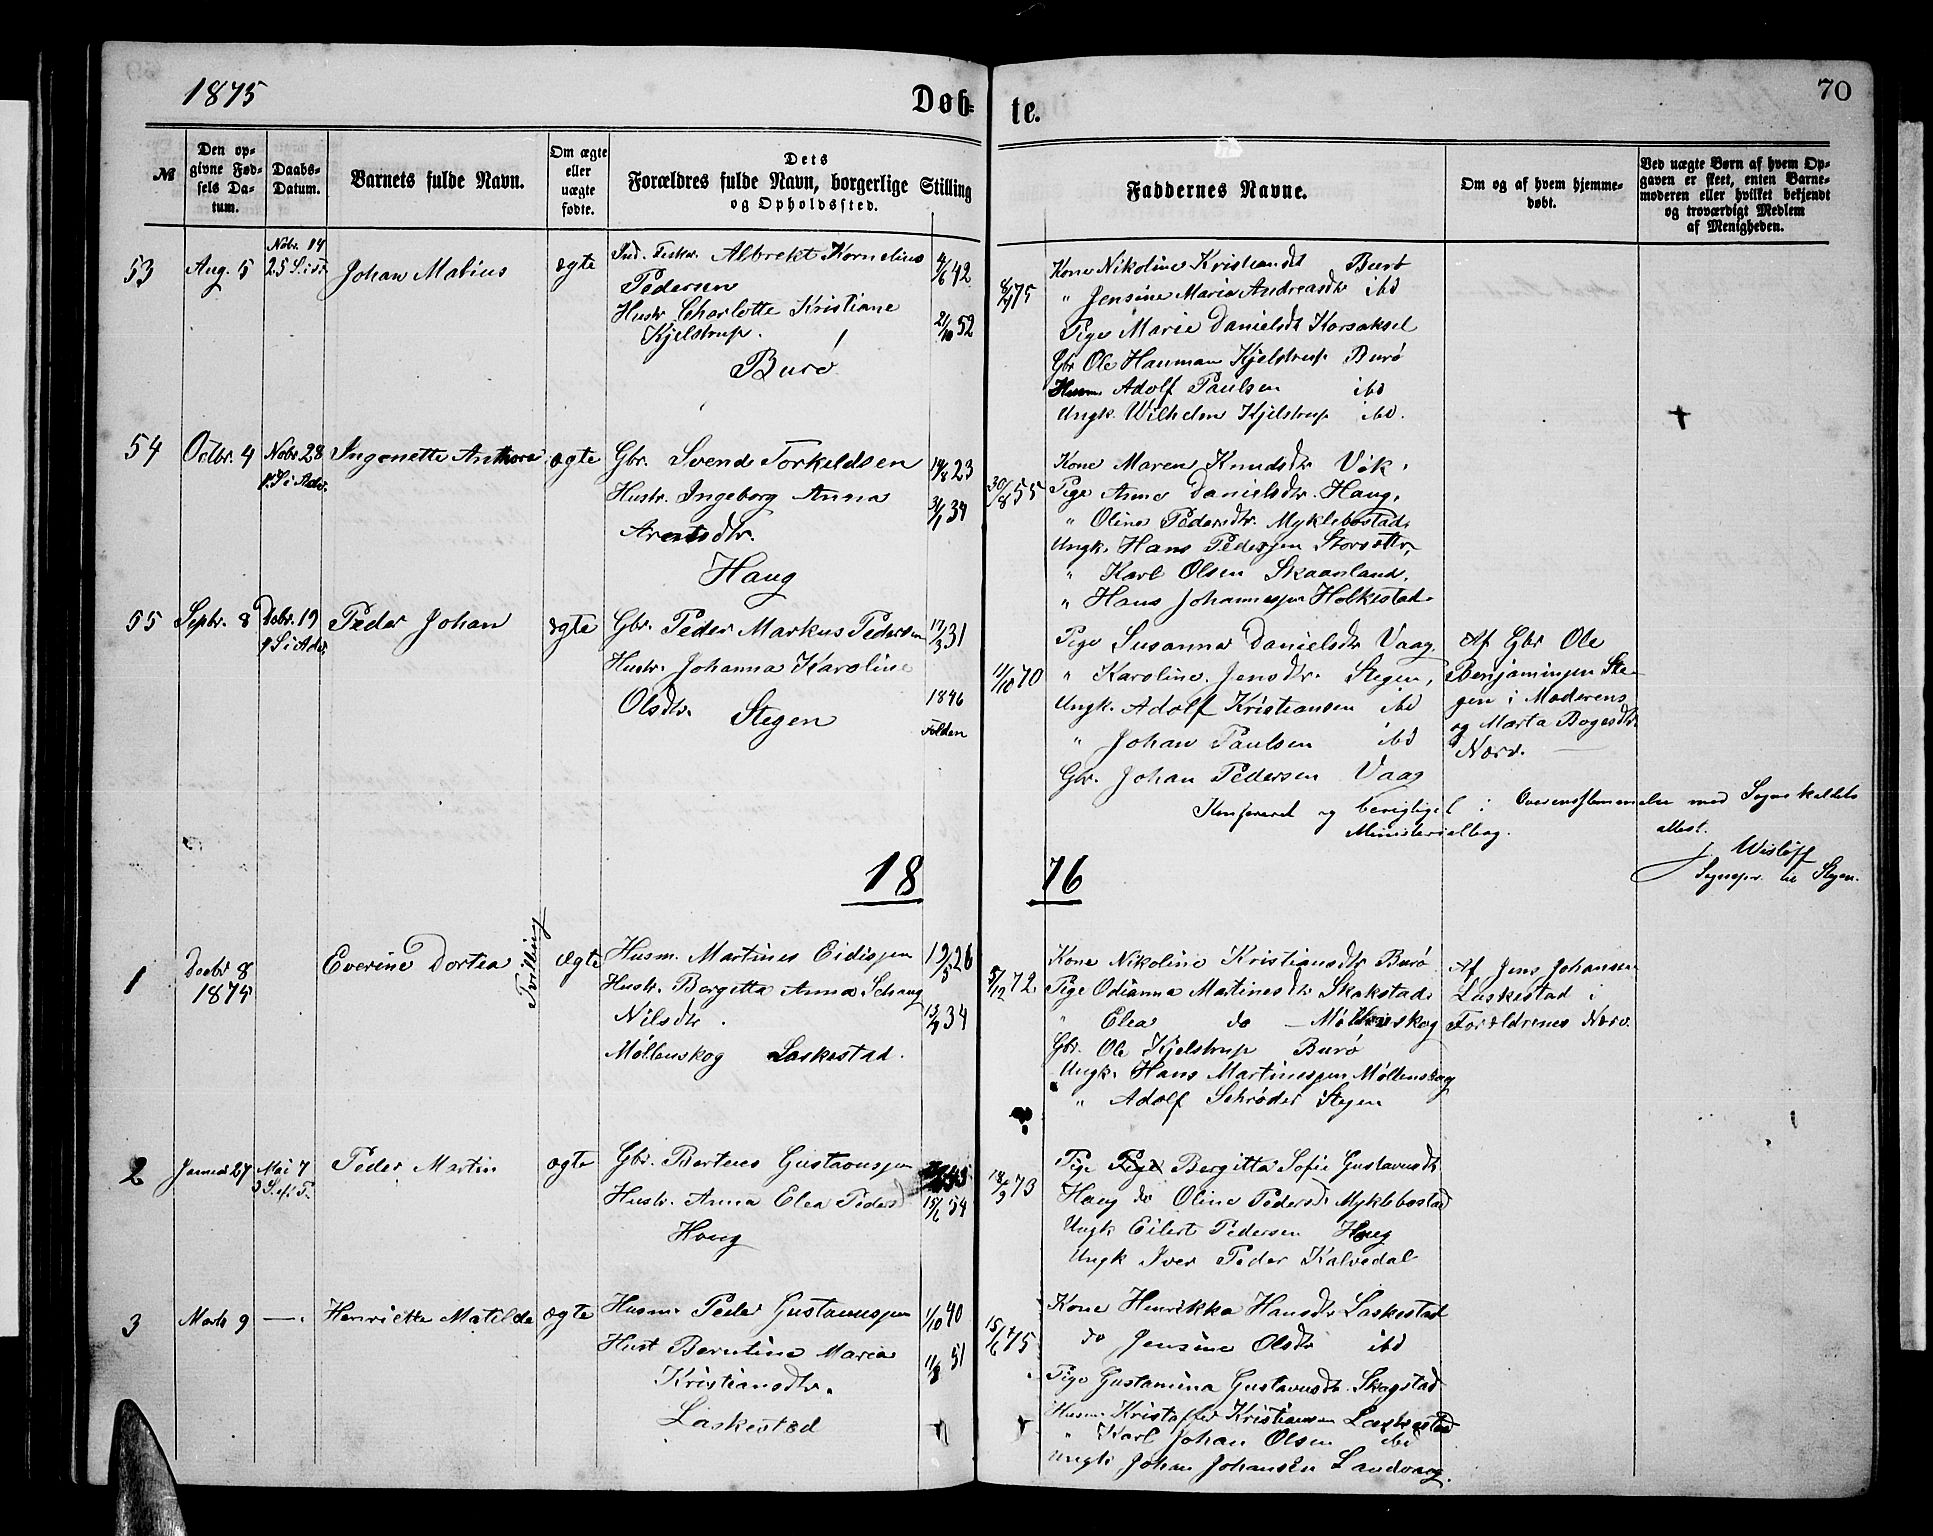 1875
Døb-
te.
70
№
Den op-
givne Fød-
sels Da-
tum.
Daabs-
Datum.
Barnets fulde Navn.
Om ægte
eller
uægte
fødte.
Dets
Forældres fulde Navn, borgerlige Stilling
og Opholdssted.
Faddernes Navne.
Om og af hvem hjemme-
døbt.
Ved uægte Børn af hvem Op-
gaven er skeet, enten Barne-
moderen eller hvilket bekjendt
og troværdigt Medlem
af Menigheden.
53
Aug. 5
Nobr. 14
25 S. i Tr.
Johan Mabius
ægte
Ind. Albrekt Kornelius 4/6 42
Pedersen
Hustr. Charlotte Kristiane
Kjelstrup. 21/10 52
Burø
8/4 75
Kone Nikoline Kristiansdt Burø
" Jensine Maria Andreasdtr ibd
Pige Marie Danielsdt Korsaksel
Gbr Ole Hauman Kjelstrup Burø
Husm. Adolf Paulsen ibd
Ungk. Wilhelm Kjelstrup ibd.
54
Octbr. 4
Nobr. 28
1. S. i Adv.
Ingonette Anthore
ægte
Gbr. Svend Torkeldsen 14/8 23
Hustr. Ingeborg Anna 3/1 34
Arentsdtr.
Haug
30/8 55
Kone Maren Knudsdtr Vik.
Pige Anne Danielsdtr. Haug,
" Oline Pedersdtr. Myklebostad,
Ungk. Hans Pedersen Storsætr,
" Karl Olsen Skaanland,
" Hans Johannesen Holkestad.
55
Sepbr. 8
Decbr. 19
4 S. i Adv.
Peder Johan
ægte
Gbr. Peder Markus Pedersen 17/3 31
Hustr. Johanna Karoline
Olsdtr. 1846
Stegen Folden
11/10 70
Pige Susanna Danielsdtr Vaag,
" Karoline Jensdtr. Stegen,
Ungk. Adolf Kristiansen ibd
" Johan Paulsen ibd
Gbr. Johan Pedersen Vaag
Af Gbr Ole
Benjaminsen Ste-
gen i Moderens
og Marta Bogesdtr
Nærv.
Konfereret og berigtiget i Overensstemmelse med Sognekaldets
Ministerialbog. attest.
J. Wisløff
Sognepr. til Stegen.
18
76
1
Decbr 8
1875
Everine Dortea
Tvilling
Ægte
Husm. Martines Eidissen 19/5 26
Hustr. Bergitta Anna Schaug
Nilsdtr. 13/9 34
Møllenskog Laskestad.
5/12 72
Kone Nikoline Kristiansdtr Burø
Pige Odianna Martinesdtr Skakstad
" Elea do – Møllenskog
Gbr. Ole Kjelstrup Burø
Ungk. Hans Martinessen Møllenskog
" Adolf Schrøder Stegen
Af Jens Johansen
Laskestad i
Forældrenes Nærv.
2
Januar 27
Mai 7
3 S. ef. P.
Peder Martin
ægte
Gbr. Berteus Gustavussen
Hustr. Anna Elea Pedersd 15/6 54
Haug
18/9 73
Pige Pige Bergitta Sofie Gustavusdt
Haug do Oline Pedersd Myklebostad
Ungk Eilert Pedersen Haug
Ungk Iver Peder Kalvedal
3
Marts 9
—
Henriette Matilde
ægte
Husm. Peder Gustavussen 1/10 40
Hust Berntine Maria 11/8 51
Kristiansdtr.
Laskestad
15/6 75
Kone Henrikka Hansdtr Laskestad
do Jensine Olsdtr ibd
Pige Gustamina Gustavusdt. Skogstad
Husm. Kristoffer Kristiansen Laskestad
" Karl Johan Olsen ibd
Ungk. Johan Johansen Landvaag.